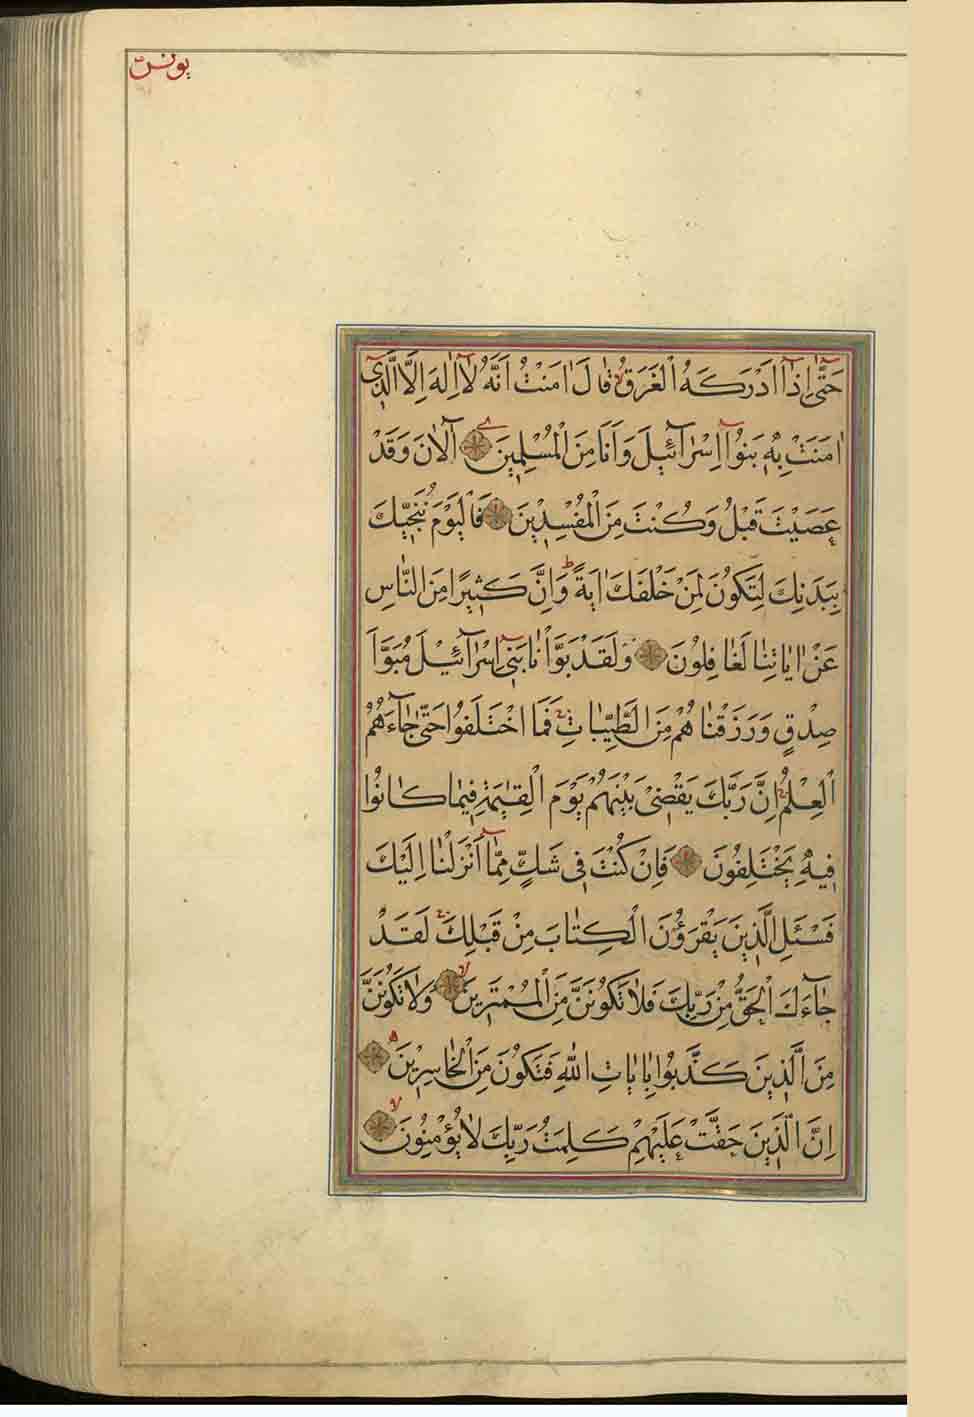 يونس
حَتّٰٓى اِذَٓا اَدْرَكَهُ الْغَرَقُ قَالَ اٰمَنْتُ اَنَّهُ لَٓا اِلٰهَ اِلَّا الَّذٖٓى
اٰمَنَتْ بِهٖ بَنُٓوا اِسْرَٓائٖيلَ وَاَنَا مِنَ الْمُسْلِمٖينَ آٰلْاٰنَ وَقَدْ
عَصَيْتَ قَبْلُ وَكُنْتَ مِنَ الْمُفْسِدٖينَ فَالْيَوْمَ نُنَجّٖيكَ
بِبَدَنِكَ لِتَكُونَ لِمَنْ خَلْفَكَ اٰيَةً وَاِنَّ كَثٖيرًا مِنَ النَّاسِ
عَنْ اٰيَاتِنَا لَغَافِلُونَ وَلَقَدْ بَوَّاْنَا بَنٖٓى اِسْرَٓائٖيلَ مُبَوَّاَ
صِدْقٍ وَرَزَقْنَاهُمْ مِنَ الطَّيِّبَاتِ فَمَا اخْتَلَفُوا حَتّٰى جَٓاءَهُمُ
الْعِلْمُ اِنَّ رَبَّكَ يَقْضٖى بَيْنَهُمْ يَوْمَ الْقِيٰمَةِ فٖيمَا كَانُوا
فٖيهِ يَخْتَلِفُونَ فَاِنْ كُنْتَ فٖى شَكٍّ مِمَّٓا اَنْزَلْنَا اِلَيْكَ
فَسْئَلِ الَّذٖينَ يَقْرَؤُنَ الْكِتَابَ مِنْ قَبْلِكَ لَقَدْ
جَٓاءَكَ الْحَقُّ مِنْ رَبِّكَ فَلَا تَكُونَنَّ مِنَ الْمُمْتَرٖينَ وَلَا تَكُونَنَّ
مِنَ الَّذٖينَ كَذَّبُوا بِاٰيَاتِ اللّٰهِ فَتَكُونَ مِنَ الْخَاسِرٖينَ
اِنَّ الَّذٖينَ حَقَّتْ عَلَيْهِمْ كَلِمَتُ رَبِّكَ لَا يُؤْمِنُونَ